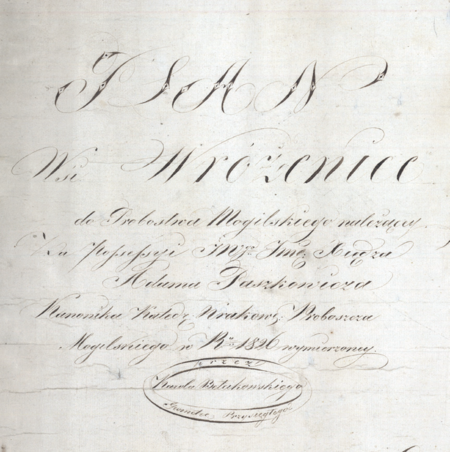 PLAN
Wsi Wróżenice
do Probostwa Mogilskiego należący
Za Possessyi Jmć Xiędza
Adama Paszkowicza
Kanonika Kated: Krakow: Proboszcza
Mogilskiego w R: 1826 wymierzony
przez
Karola
Przysięgłego